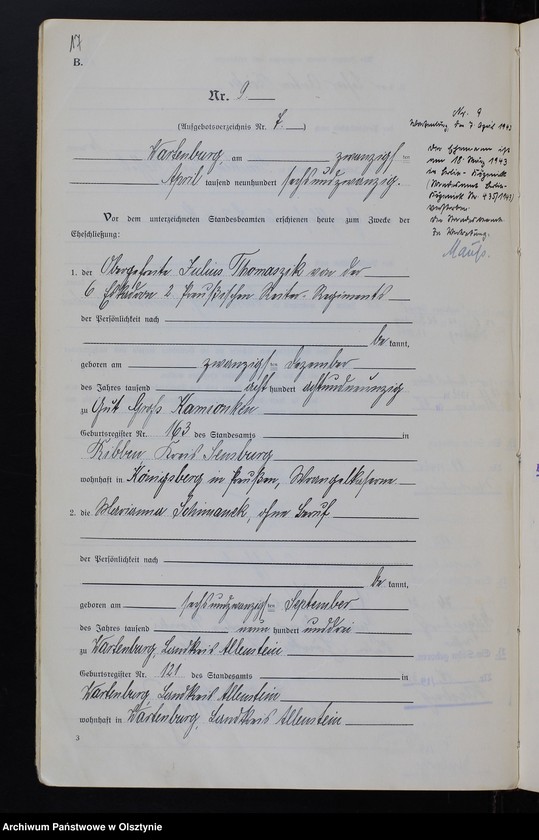 17
B.
Nr. 9
(Aufgebotsverzeichnis Nr. 7.)
Wartenburg, am zwanzigsten
April tausend neunhundert sechsundzwanzig.
Vor dem unterzeichneten Standesbeamten erschienen heute zum Zwecke der
Eheschließung:
1. der Obergefreite Julius Thomaszik von der
6 Eskadron 2. Preußischen Reiter-Regiments
der Persönlichkeit nach
be kannt,
geboren am zwanzigsten Dezember
des Jahres tausend acht hundert achtundneunzig
zu Gut Groß Kamionken
Geburtsregister Nr. 163 des Standesamts in
Ribben, Kreis Sensburg
wohnhaft in Königsberg in Preußen, Wrangelkaserne
2. die Marianna Schimanek, ohne Beruf
der Persönlichkeit nach
be kannt,
geboren am sechsundzwanzigsten September
des Jahres tausend neun hundert unddrei
zu Wartenburg, Landkreis Allenstein
Geburtsregister Nr. 121 des Standesamts in
Wartenburg, Landkreis Allenstein
wohnhaft in Wartenburg, Landkreis Allenstein
3
Nr. 9
Wartenburg, den 7. April 1943
Der Ehemann ist
am 18. März 1943
in Berlin-Köpenick
(Standesamt Berlin-
Köpenick Nr. 435/1943)
verstorben.
Der Standesbeamte
In Vertretung.
Archiwum Państwowe w Olsztynie